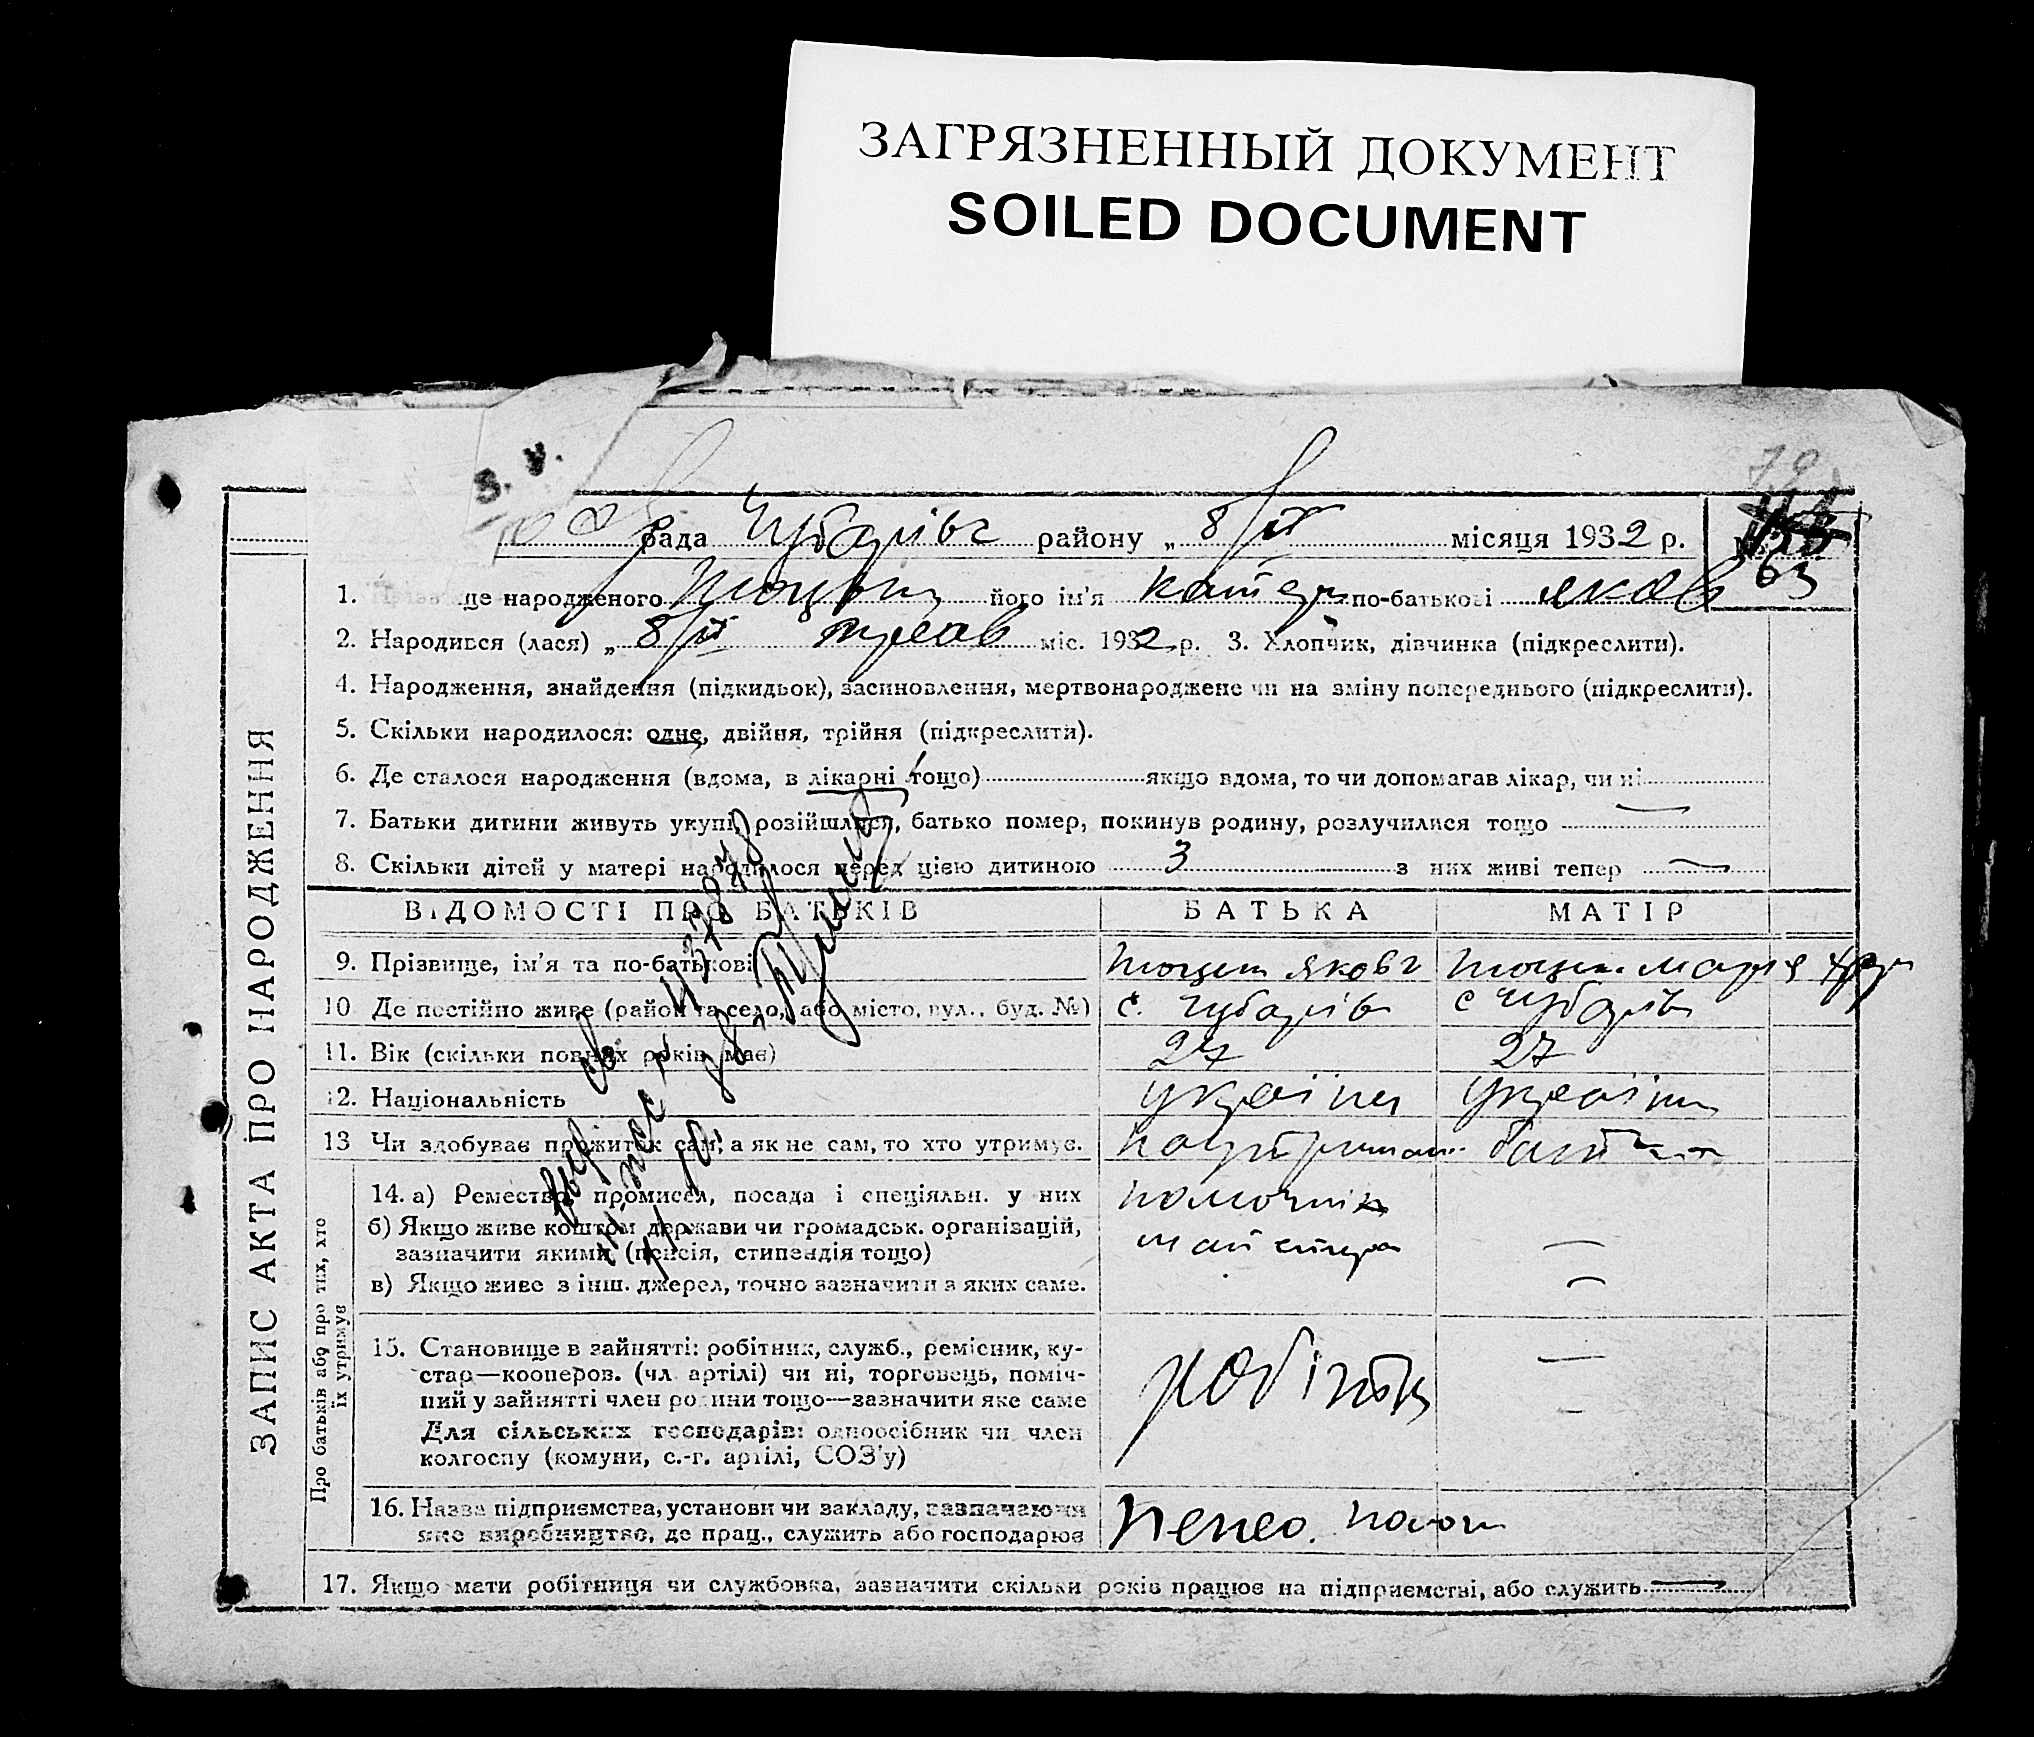 ЗАГРЯЗНЕННЫЙ ДОКУМЕНТ
SOILED DOCUMENT
рада Чубарівс району „ 8/ місяця 1932 р.
63
1. це народженого його ім'я Катер по-батькові Яков
2. Народився (лася) „ 8/ міс. 1932 р. 3. Хлопчик, дівчинка (підкреслити).
4. Народження, знайдення (підкидьок), засиновлення, мертвонароджене чи на зміну попереднього (підкреслити).
5. Скільки народилося: одне, двійня, трійня (підкреслити).
6. Де сталося народження (вдома, в лікарні тощо) якщо вдома, то чи допомагав лікар, чи ні
7. Батьки дитини живуть укупі, розійшлися, батько помер, покинув родину, розлучилися тощо —
8. Скільки дітей у матері народилося перед цією дитиною 3 з них живі тепер —
ЗАПИС АКТА ПРО НАРОДЖЕННЯ
ВІДОМОСТІ ПРО БАТЬКІВ БАТЬКА МАТІР
9. Прізвище, ім'я та по-батькові Яков Мария
10 Де постійно живе (район та село, або місто, вул., буд. №) с. Чубарів с Чубарів
11. Вік (скільки повних років має) 27 27
12. Національність україн україн
13 Чи здобуває прожиток сам, а як не сам, то хто утримує.
Про батьків або про тих, хто
їх утримує
14. а) Ремество, промисел, посада і спеціяльн. у них помочник
б) Якщо живе коштом держави чи громадськ. організацій,
зазначити якими (пенсія, стипендія тощо) —
в) Якщо живе з інш. джерел, точно зазначити з яких саме. —
15. Становище в зайнятті: робітник, служб., ремісник, ку-
стар—кооперов. (чл. артілі) чи ні, торговець, поміч- робітн —
ний у зайнятті член родини тощо—зазначити яке саме —
Для сільських господарів: одноосібник чи член
колгоспу (комуни, с.-г. артілі, СОЗ'у)
16. Назва підприємства, установи чи закладу, зазначаючи
яке виробництво, де прац., служить або господарює
17. Якщо мати робітниця чи службовка, зазначити скільки років працює на підприємстві, або служить —